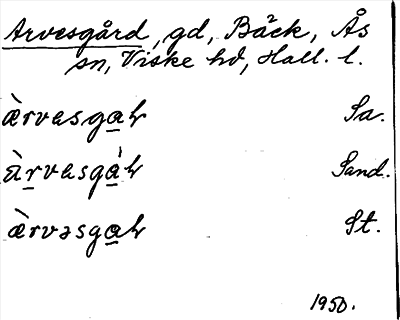 Arvesgård, gd, Bäck, Ås
sn, Viske hd, Hall. l.
æ̀rvesga̲h Sa.
ær̲vesgá̲h Sand.
æ̀rvəsga̲h St.
1950.